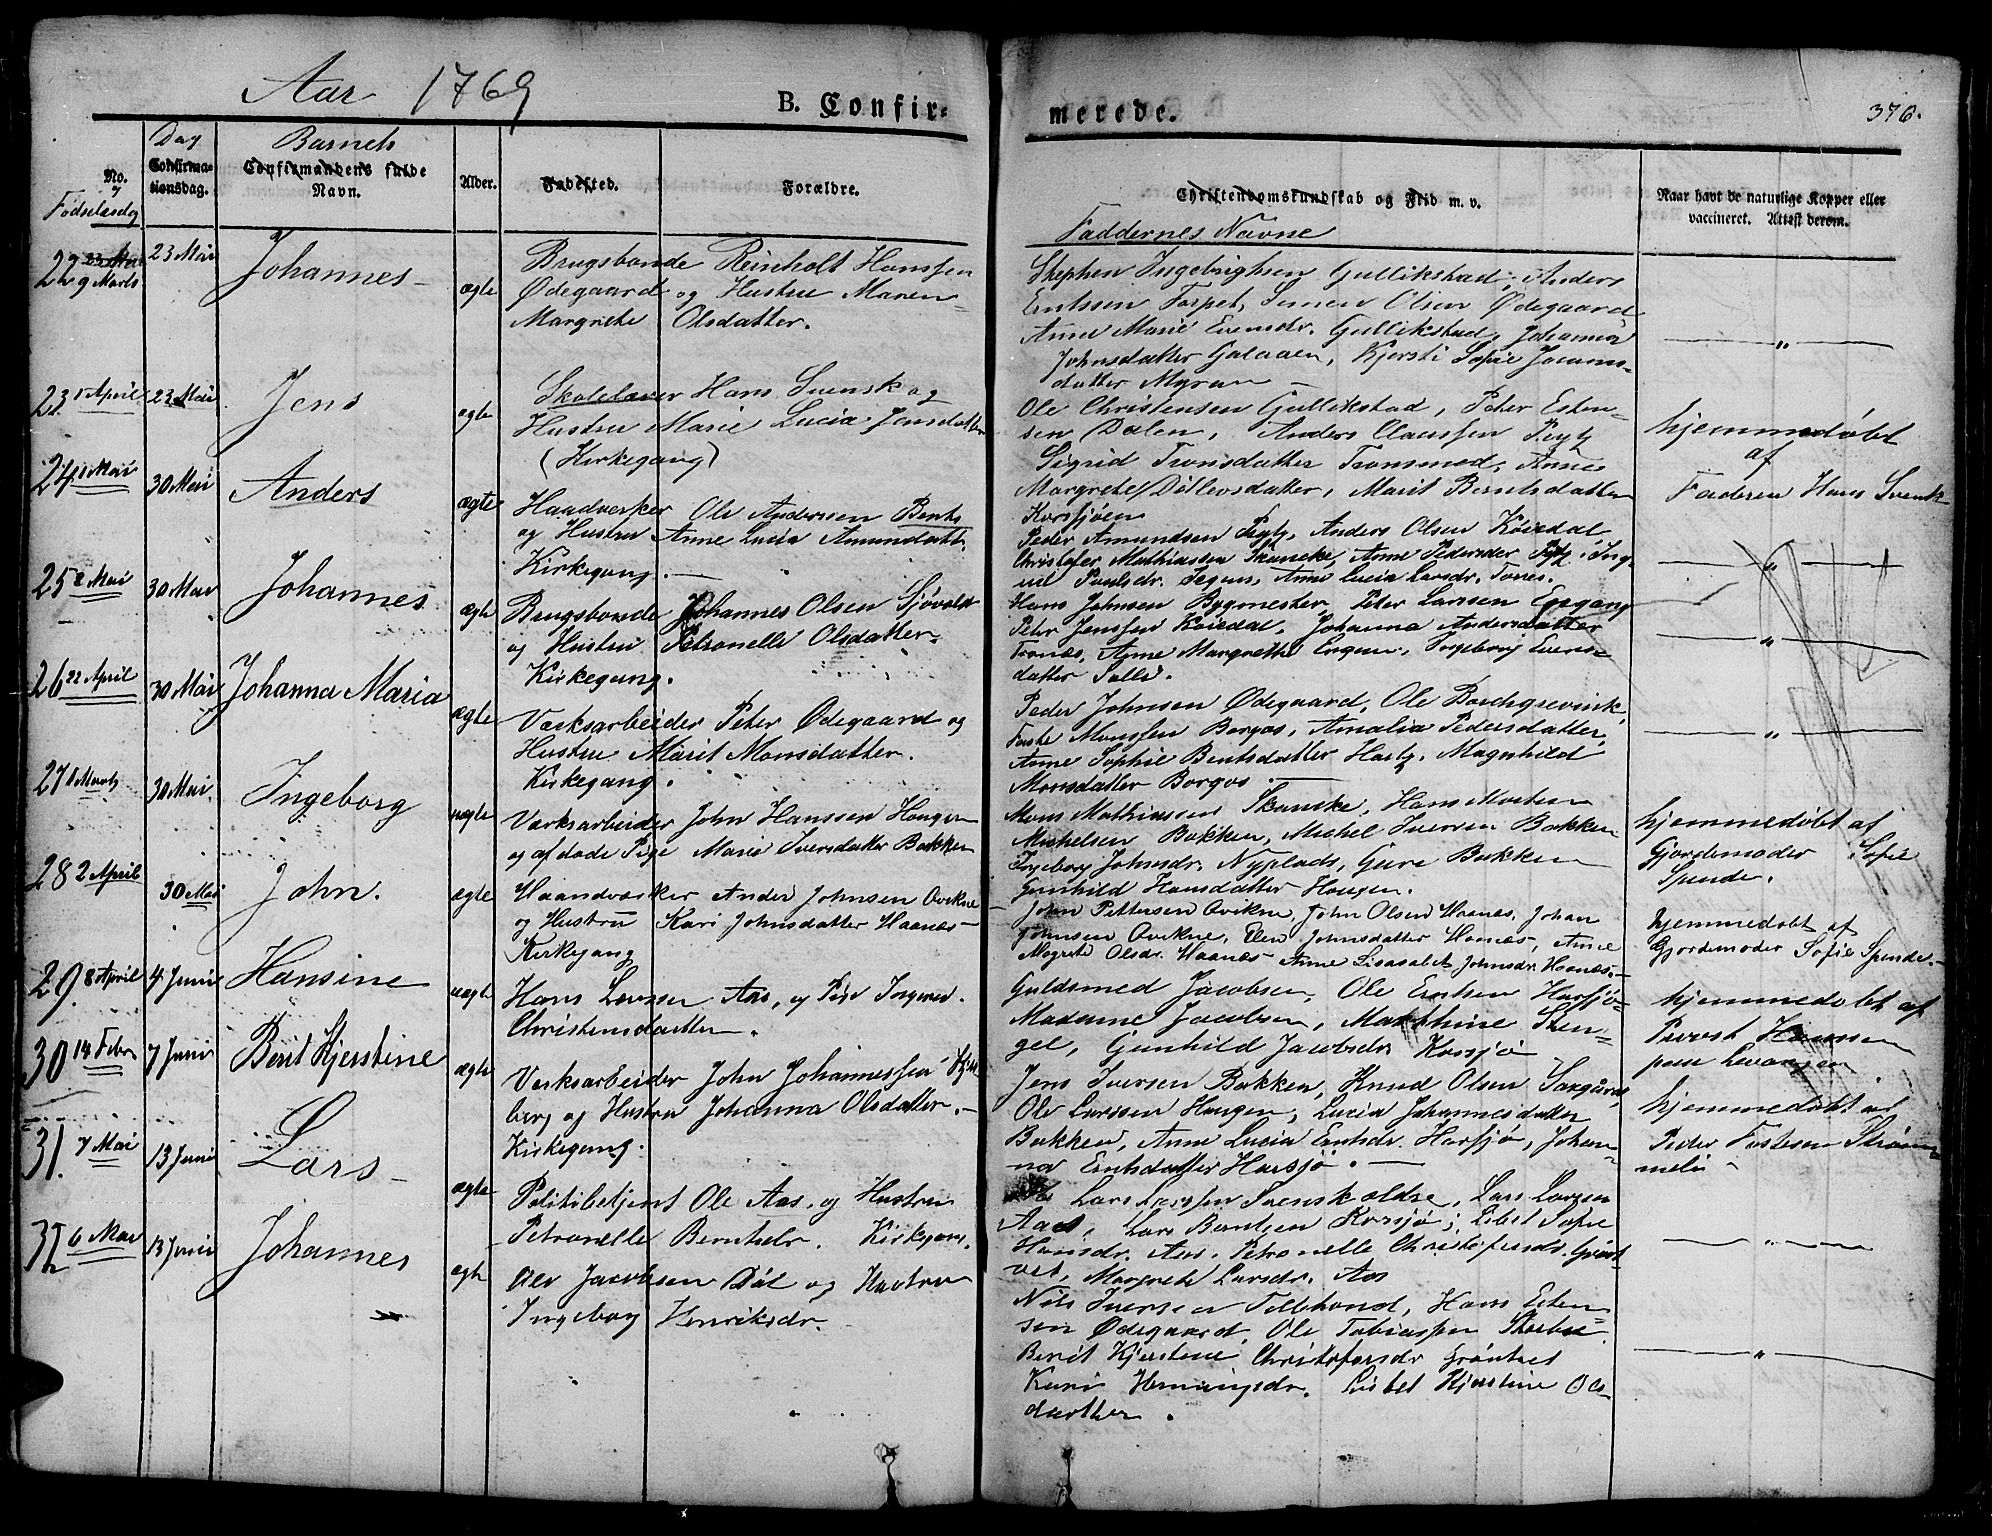 Aar 1769
B. Confir-
merede.
376.
Dag
Barnets
No.
Confirma-
tionsdag.
Confirmandens fulde
Navn.
Alder.
Fødested.
Forældre.
Christendomskundskab og Flid m. v.
Naar havt de naturlige Kopper eller
vaccineret. Attest derom.
Fødselsdag
Faddernes Navne
22 9 Marts
23 Mai
Johannes
ægte
Brugsbonde Reinholt Hanssen
Ødegaard og Hustru Maren
Margrete Olsdatter.
Stephen Ingebrigtsen Gullikstad, Anders
Erntssen Torpet, Simen Olsen Ødegaard
Anne Marie Evensdr. Gullikstad, Johanna
Johnsdatter Galaaen, Kjersti Sofie
datter Myran
"
23. 1 April
23 Mai
Jens
ægte
Skolelærer Hans Svensk og
Hustru Marie Lucia Jensdatter
(Kirkegang)
Ole Christensen Gullikstad, Peter Esten-
sen Dalen, Anders Claussen
Sigrid Tronsdatter Tronsmed, Anne
Margrete Ditlevsdatter, Marit Berntsdatter
Korssjöen
hjemmedøbt
af
Faderen Hans Svensk
24 1 Mai
30 Mai
Anders
ægte
Haandverker Ole Andersen
og Hustru Anne Lucia Amundsdatt.
Kirkegang.
Peder Amundsen Anders Olsen Koiedal
Christofer Mathiassen Skancke, Anne Pedersdr
Poulsdr. Anne Lucia Larsdr. Tones.
"
25 2 Mai
30 Mai
Johannes
ægte
Brugsbonde Johannes Olsen Sjövold
og Hustru Petronelle Olsdatter
Kirkegang.
Hans Johnsen Bygmester, Peter Larssen Engang
Peter Jenssen Koiedal, Johanna Andersdatter
Tronæs, Anne Margrethe Engen, Ingeborg Evens-
datter
"
26 22 April
30 Mai
Johanna Maria
ægte
Værksarbeider Peter Ødegaard og
Hustru Marit Monsdatter.
Kirkegang.
Peder Johnsen Ødegaard, Ole Borchgrevink,
Faste Monssen Borgos, Amalia Pedersdatter,
Anne Sophie Bentsdatter Magnhild
Monsdatter Borgos.
"
27 1 Marts
30 Mai.
Ingeborg
uægte
Værksarbeider John Hanssen Hougen
og afdøde Pige Marie Iversdatter Bakken
Mons Mathiassen Skancke, Hans Morten
Michelsen Bakken, Michel Iversen Bakken
Ingeborg Johnsdr. Nyplads, Guri Bakken
Gunhild Hansdatter Hougen.
hjemmedøbt af
Gjordemoder Sofie
Spende.
28 2 April
30 Mai
John.
ægte
Haandværker Ander Johnsen Qvikne
og Hustru Kari Johnsdatter Haanæs
Kirkegang
John Pettersen Qvikne, John Olsen Haanæs, Johan
Johnsen Qvikne, Elen Johnsdatter Haanæs, Anne
Magrete Olsdr. Haanæs Anne Lisasabet Johnsdr. Haanæs.
hjemmedøbt af
Gjordemoder Sofie Spende.
29. 8 April
4 Juni
Hansine
uægte
Hans Larssen Aas, og Pige
Christensdatter.
Guldsmed Jacobsen, Ole Erntsen Harsjö
Madame Jacobsen, Matthine Sten-
gel, Gunhild Jacobsdr. Korssjö
hjemmedøbt af
Provst Hanssen
30 14 Febr
7 Juni
Berit Kjerstine
ægte
Værksarbeider John Johannessen
berg og Hustru Johanna Olsdatter.
Kirkegang.
Jens Iversen Bakken, Knud Olsen
Ole Larssen Hougen, Lucia Johannesdatter
Bakken, Anne Lucia Erntsdr. Harsjø, Johan-
na Erntsdatter Harsjø.
hjemmedøbt af
Peder Fastesen Strøm-
melie
31. 7 Mai
13 Juni
Lars
ægte
Politibetjent Ole Aas og Hustru
Petronelle Berntsdr. Kirkegang.
Lars Larssen Svensk ældre, Lars Larssen
Aas, Lars Berntsen Korssjø, Lisbet Sofie
Hansdr. Aas, Petronelle Christofersdr. Grönt-
vet, Margrete Larsdr. Aas
"
32 6 Mai
13 Juni
Johannes
ægte
Ole Jacobsen Dal og Hustru
Ingeborg Henriksdr.
Nils Iversen Hans Esten-
sen Ødegaard, Ole Tobiassen
Berit Kjerstine Christofersdr Gröntvet
Kari Henningsdr. Lisbet Kjerstine Ols-
datter.
"